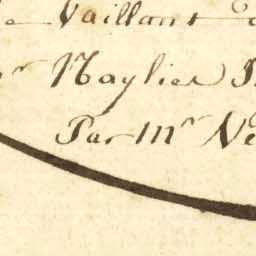 Vaillant
Naylies
Par Mr Ne